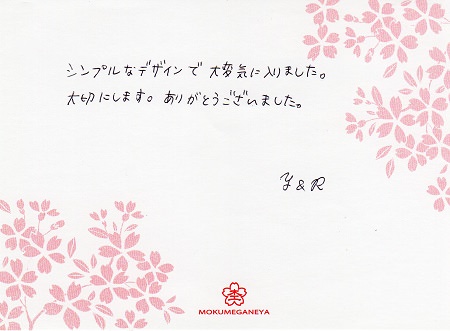 シンプルなデザインで大変気に入りました。
大切にします。ありがとうございました。
Y & R
MOKUMEGANEYA